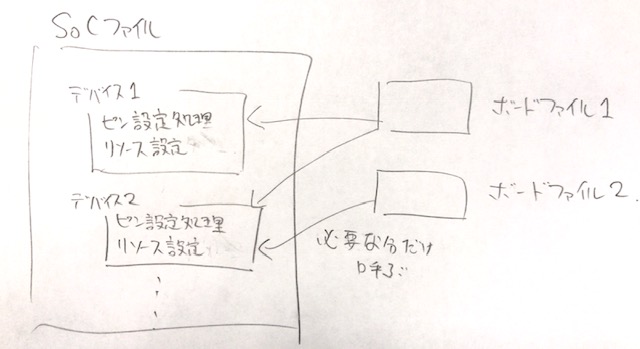 SoCファイル
デバイス1
ピン設定処理
リソース設定
デバイス2
ピン設定処理
リソース設定
ボードファイル1
ボードファイル2
必要な分だけ
呼ぶ